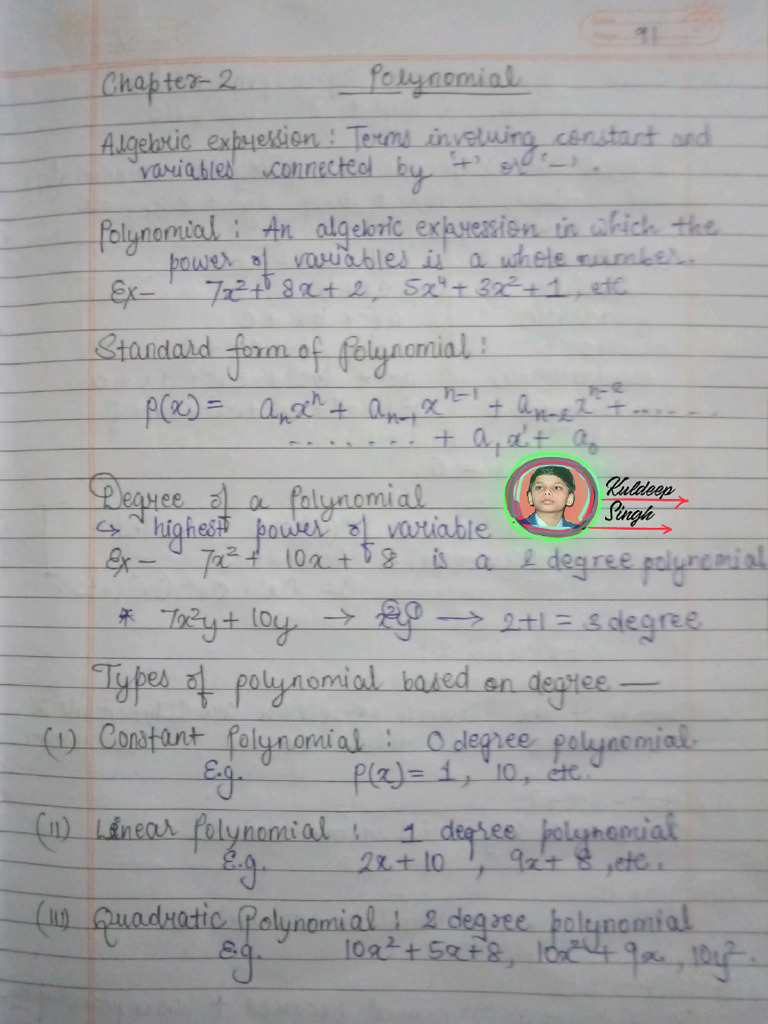 91
Chapter-2 Polynomial
Algebric expression : Terms involving constant and
variables connected by '+' or '-'.
Polynomial : An algebric expression in which the
power of variables is a whole number.
Ex- 7x² + 8x + 2, 5x⁴ + 3x² + 1, etc
Standard form of Polynomial :
P(x) = aₙxⁿ + aₙ₋₁xⁿ⁻¹ + aₙ₋₂xⁿ⁻² + .......
........ + a₁x¹ + a₀
Degree of a Polynomial
Kuldeep
Singh
↳ highest power of variable
Ex - 7x² + 10x + 8 is a 2 degree polynomial
* 7x²y + 10y → x²y¹ → 2+1 = 3 degree
Types of polynomial based on degree —
(I) Constant Polynomial : 0 degree polynomial.
E.g. P(x) = 1, 10, etc.
(II) Linear Polynomial : 1 degree polynomial
E.g. 2x + 10 , 9x + 8 , etc.
(III) Quadratic Polynomial : 2 degree polynomial
E.g. 10x² + 5x + 8, 10x² + 9x , 10y².